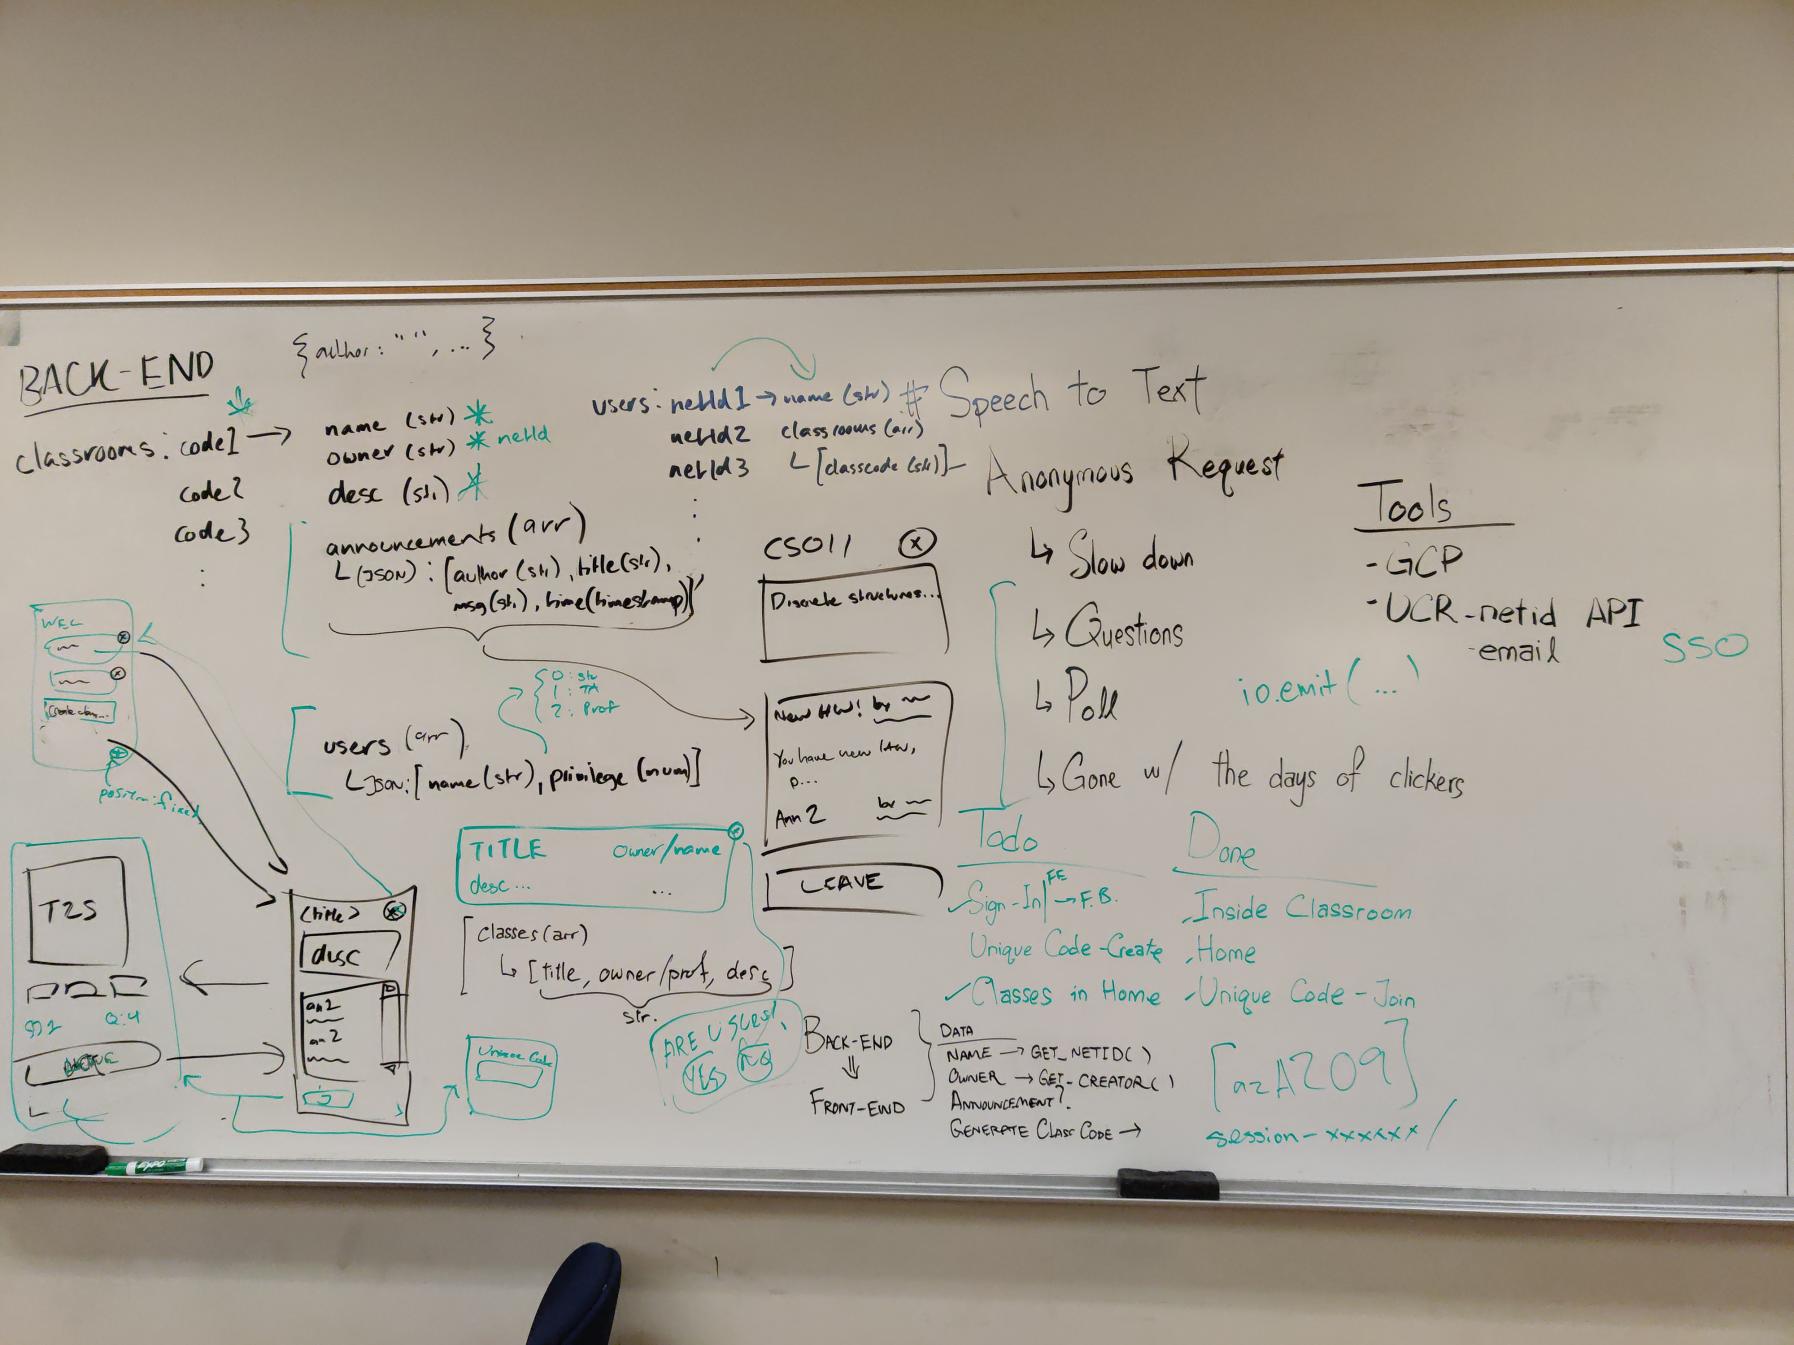 BACK-END
{author: "", ...}
classrooms: code1 → name (str) *
owner (str) * netId
code2
desc (str) *
code3
announcements (arr)
↳ (JSON): [author (str), title (str),
msg (str), time (timestamp)]
users (arr)
↳ JSON: [name (str), privilege (num)]
0: stu
1: TA
2: Prof
users: netId1 → name (str)
netId2 classrooms (arr)
netId3 ↳ [classcode (str)]
# Speech to Text
Anonymous Request
↳ Slow down
↳ Questions
↳ Poll
↳ Gone w/ the days of clickers
Tools
- GCP
- UCR-netid API
-email
SSO
io.emit(...)
CS011 ⓧ
Discrete structures...
New HW! by
You have new HW,
Ann 2 by
LEAVE
WEL
Create class...
position: fixed
T2S
SD 2 Q: 4
<title>
desc
an 2
an 2
TITLE owner/name
desc... ...
Classes (arr)
↳ [title, owner/prof, desc]
str.
Unique Code
ARE U SURE?
YES NO
Todo
Sign-In FE → F.B.
Unique Code - Create
✓ Classes in Home
Done
Inside Classroom
Home
Unique Code - Join
BACK-END
⇓
FRONT-END
DATA
NAME → GET_NETID()
OWNER → GET_CREATOR()
ANNOUNCEMENT?
GENERATE CLASS CODE →
[azA209]
session-xxxxxx/
EXPO